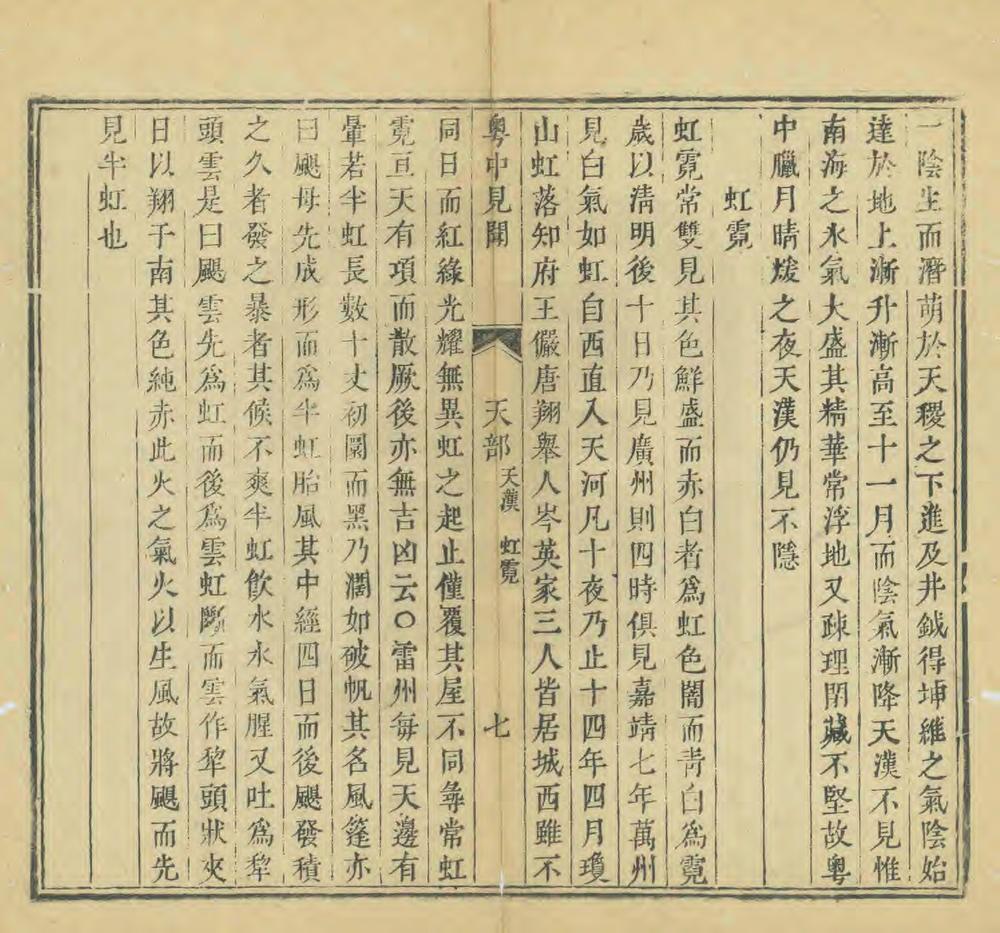 一陰生而潛萌於天稷之下進及井鉞得坤維之氣陰始
達於地上漸升漸高至十一月而陰氣漸降天漢不見惟
南海之水氣大盛其精華常浮地又疎理閉藏不堅故粤
中臘月晴煖之夜天漢仍見不隱
虹霓
虹霓常雙見其色鮮盛而赤白者爲虹色闇而青白爲霓
歲以清明後十日乃見廣州則四時俱見嘉靖七年萬州
見白氣如虹自西直入天河凡十夜乃止十四年四月瓊
山虹落知府王儼唐翔舉人岑英家三人皆居城西雖不
粤中見聞 天部 天漢 虹霓 七
同日而紅綠光耀無異虹之起止僅覆其屋不同尋常虹
霓亘天有項而散厥後亦無吉凶云○雷州每見天邊有
暈若半虹長數十丈初圓而黑乃濶如破帆其名風篷亦
曰颶母先成形而爲半虹胎風其中經四日而後颶發積
之久者發之暴者其候不爽半虹飲水水氣腥又吐爲犂
頭雲是曰颶雲先爲虹而後爲雲虹斷而雲作犂頭狀夾
日以翔于南其色純赤此火之氣火以生風故將颶而先
見半虹也